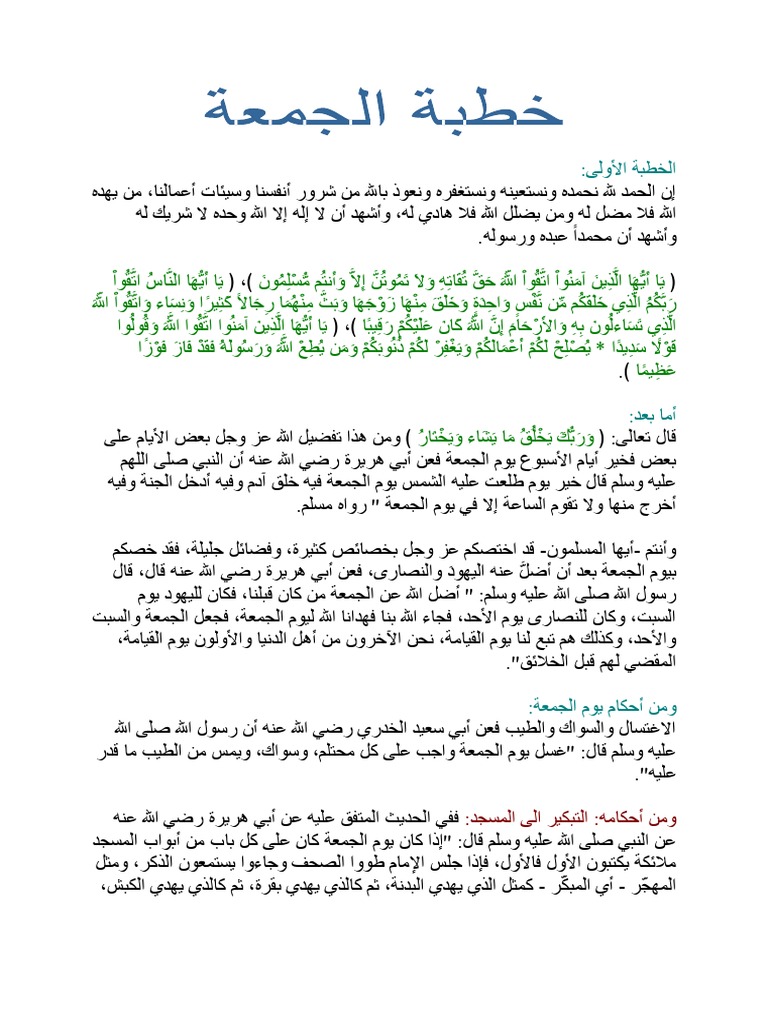 خطبة الجمعة
الخطبة الأولى:
إن الحمد لله نحمده ونستعينه ونستغفره ونعوذ بالله من شرور أنفسنا وسيئات أعمالنا، من يهده
الله فلا مضل له ومن يضلل الله فلا هادي له، وأشهد أن لا إله إلا الله وحده لا شريك له
وأشهد أن محمدأ عبده ورسوله.
( يَا أَيُّهَا الَّذِينَ آمَنُواْ اتَّقُواْ اللَّهَ حَقَّ تُقَاتِهِ وَلاَ تَمُوتُنَّ إِلاَّ وَأَنتُم مُّسْلِمُونَ )، ( يَا أَيُّهَا النَّاسُ اتَّقُواْ
رَبَّكُمُ الَّذِي خَلَقَكُم مِّن نَّفْسٍ وَاحِدَةٍ وَخَلَقَ مِنْهَا زَوْجَهَا وَبَثَّ مِنْهُمَا رِجَالاً كَثِيرًا وَنِسَاء وَاتَّقُواْ اللَّهَ
الَّذِي تَسَاءلُونَ بِهِ وَالأَرْحَامَ إِنَّ اللَّهَ كَانَ عَلَيْكُمْ رَقِيبًا )، ( يَا أَيُّهَا الَّذِينَ آمَنُوا اتَّقُوا اللَّهَ وَقُولُوا
قَوْلًا سَدِيدًا * يُصْلِحْ لَكُمْ أَعْمَالَكُمْ وَيَغْفِرْ لَكُمْ ذُنُوبَكُمْ وَمَن يُطِعْ اللَّهَ وَرَسُولَهُ فَقَدْ فَازَ فَوْزًا
عَظِيمًا ).
أما بعد:
قال تعالى: ( وَرَبُّكَ يَخْلُقُ مَا يَشَاء وَيَخْتَارُ ) ومن هذا تفضيل الله عز وجل بعض الأيام على
بعض فخير أيام الأسبوع يوم الجمعة فعن أبي هريرة رضي الله عنه أن النبي صلى اللهم
عليه وسلم قال خير يوم طلعت عليه الشمس يوم الجمعة فيه خلق آدم وفيه أدخل الجنة وفيه
أخرج منها ولا تقوم الساعة إلا في يوم الجمعة " رواه مسلم.
وأنتم -أيها المسلمون- قد اختصكم عز وجل بخصائص كثيرة، وفضائل جليلة، فقد خصكم
بيوم الجمعة بعد أن أضلَّ عنه اليهودَ والنصارى، فعن أبي هريرة رضي الله عنه قال، قال
رسول الله صلى الله عليه وسلم: "أضل الله عن الجمعة من كان قبلنا، فكان لليهود يوم
السبت، وكان للنصارى يوم الأحد، فجاء الله بنا فهدانا الله ليوم الجمعة، فجعل الجمعة والسبت
والأحد، وكذلك هم تبع لنا يوم القيامة، نحن الآخرون من أهل الدنيا والأولون يوم القيامة،
المقضي لهم قبل الخلائق".
ومن أحكام يوم الجمعة:
الاغتسال والسواك والطيب فعن أبي سعيد الخدري رضي الله عنه أن رسول الله صلى الله
عليه وسلم قال: "غسل يوم الجمعة واجب على كل محتلم، وسواك، ويمس من الطيب ما قدر
عليه".
ومن أحكامه: التبكير الى المسجد: ففي الحديث المتفق عليه عن أبي هريرة رضي الله عنه
عن النبي صلى الله عليه وسلم قال: "إذا كان يوم الجمعة كان على كل باب من أبواب المسجد
ملائكة يكتبون الأول فالأول، فإذا جلس الإمام طووا الصحف وجاءوا يستمعون الذكر، ومثل
المهجّر - أي المبكّر - كمثل الذي يهدي البدنة، ثم كالذي يهدي بقرة، ثم كالذي يهدي الكبش،